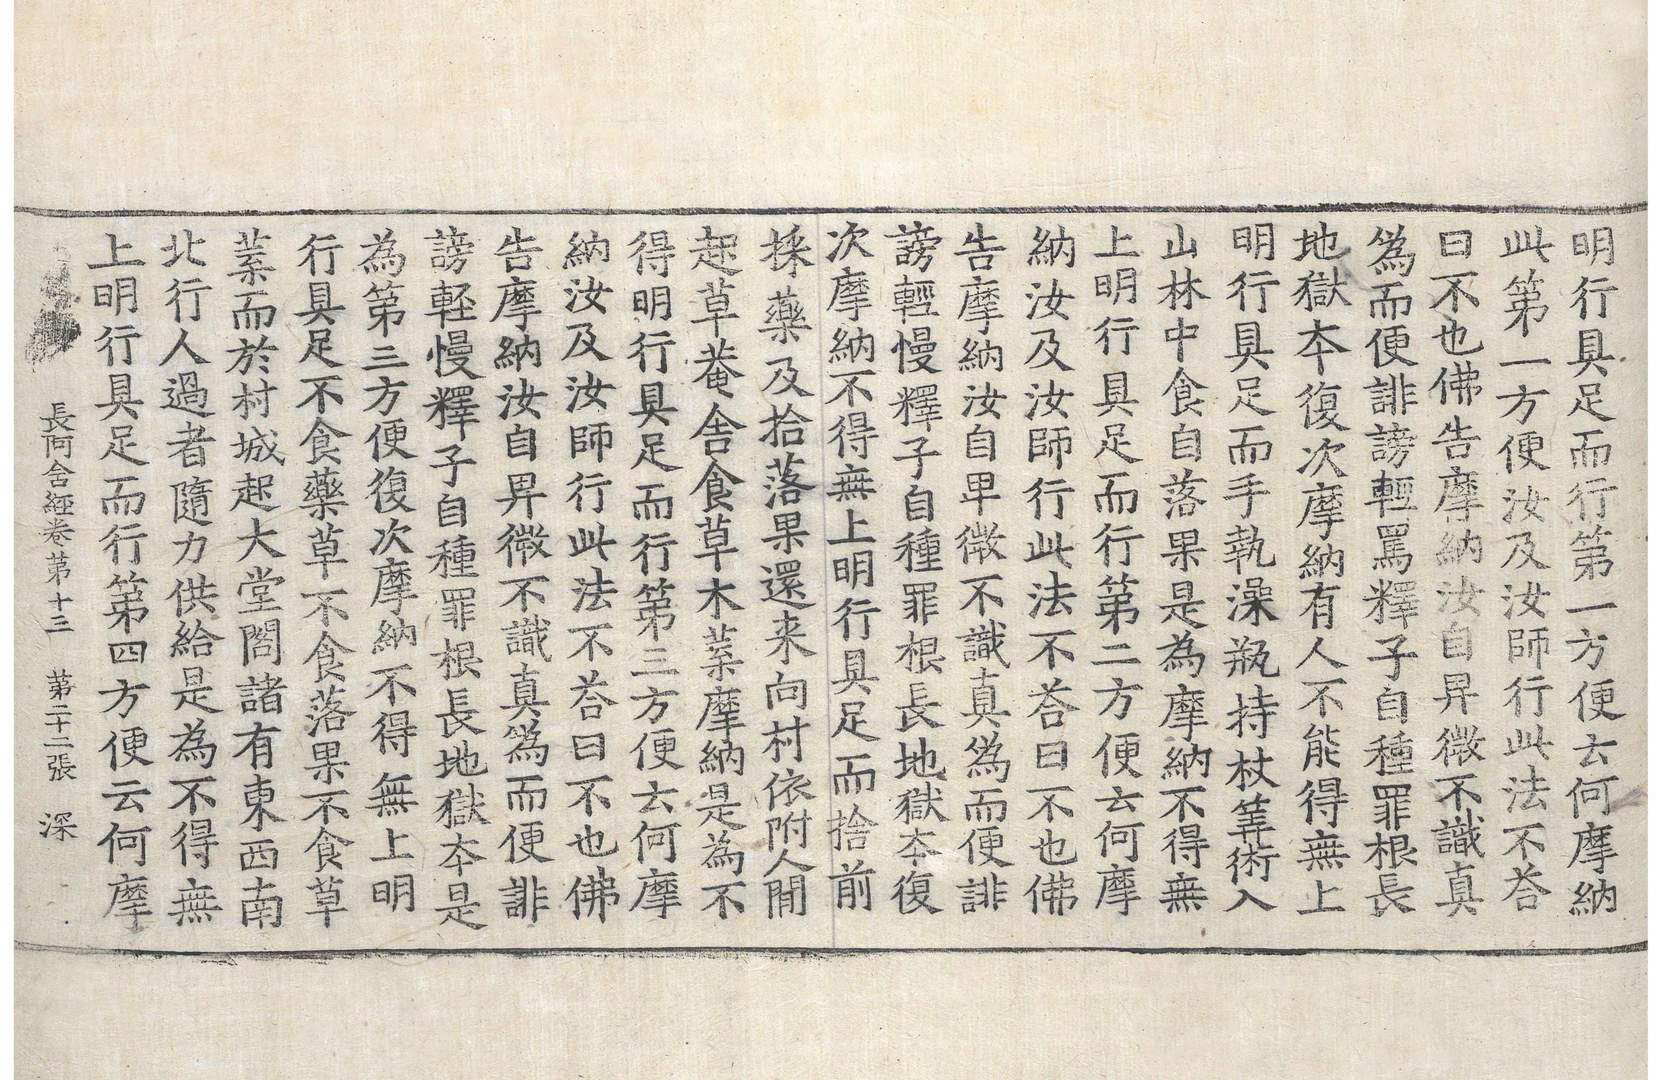 明行具足而行第一方便云何摩納
此第一方便汝及汝師行此法不荅
曰不也佛告摩納汝自昇微不識真
爲而便誹謗輕罵釋子自種罪根長
地獄夲復次摩納有人不能得無上
明行具足而手執澡瓶持杖筭術入
山林中食自落果是為摩納不得無
上明行具足而行第二方便云何摩
納汝及汝師行此法不荅曰不也佛
告摩納汝自卑微不識真爲而便誹
謗輕慢釋子自種罪根長地獄夲復
次摩納不得無上明行具足而捨前
採藥及拾落果還来向村依附人間
起草菴舍食草木葉摩納是為不
得明行具足而行第三方便云何摩
納汝及汝師行此法不荅曰不也佛
告摩納汝自昇微不識真爲而便誹
謗軽慢釋子自種罪根長地獄夲是
為第三方便復次摩納不得無上明
行具足不食藥草不食落果不食草
葉而於村城起大堂閣諸有東西南
北行人過者隨力供給是為不得無
上明行具足而行第四方便云何摩
長阿含經卷第十三 第二十二張 深